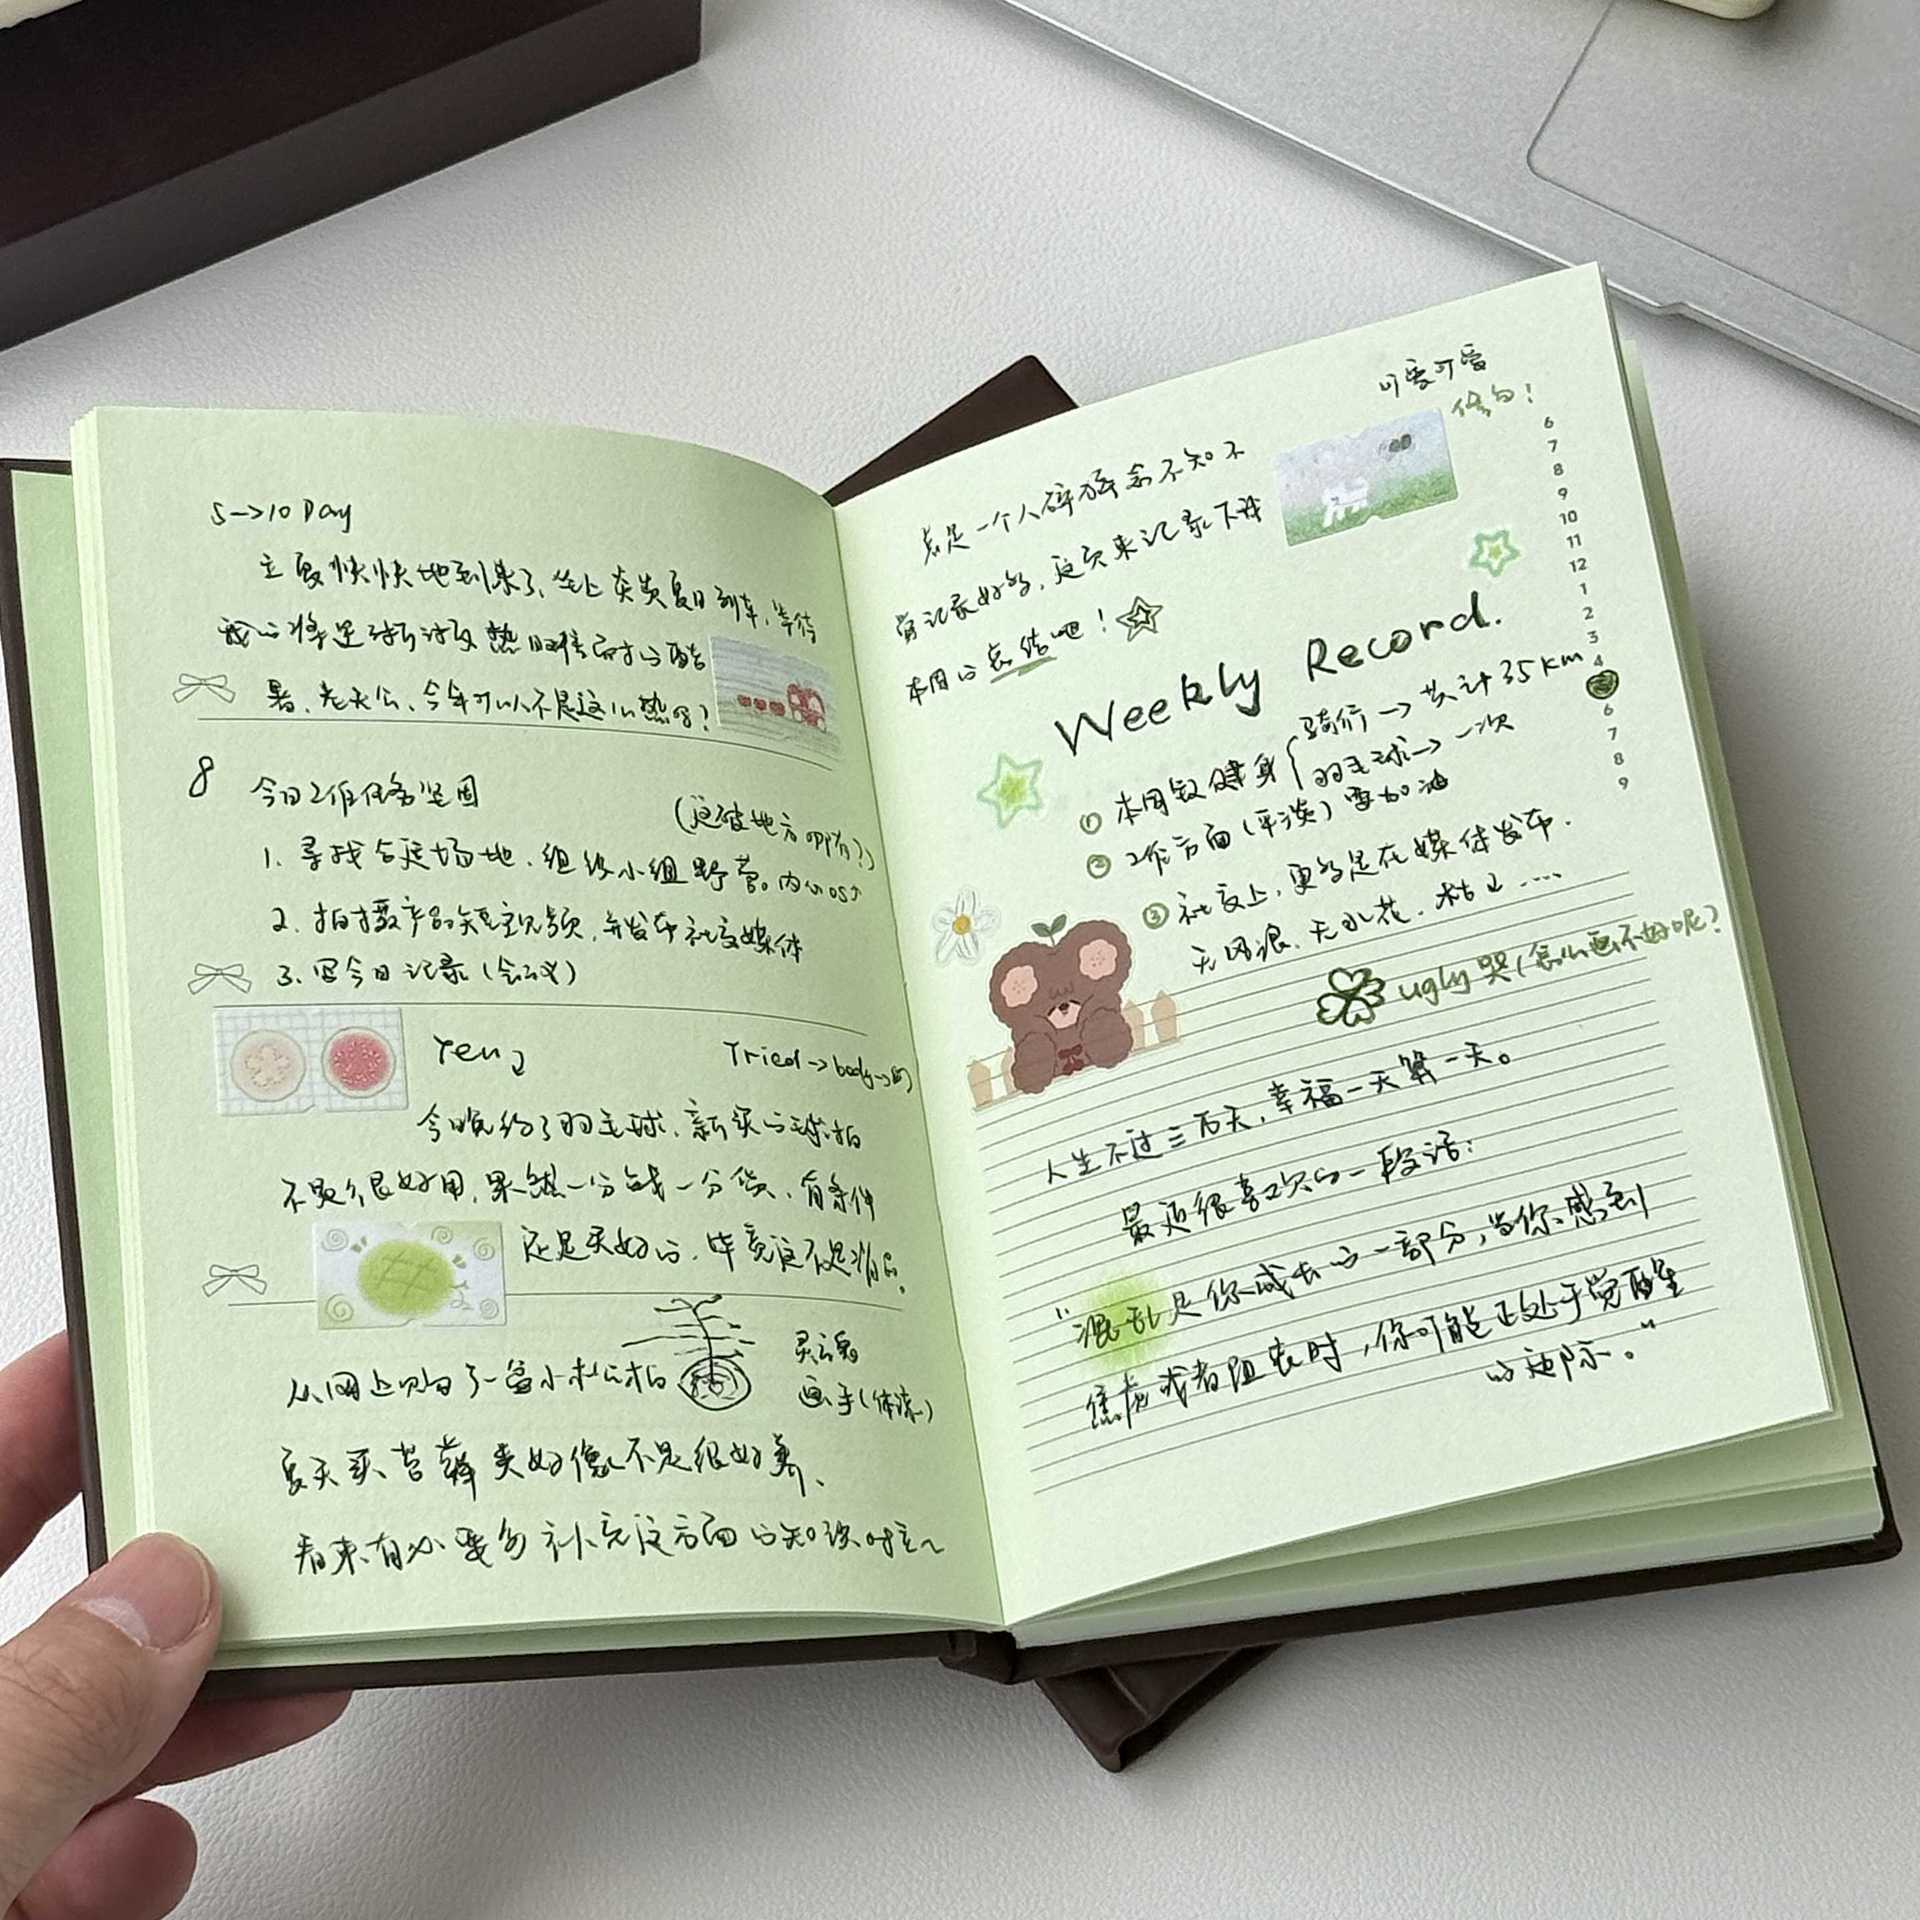 5→10 Day
立夏快快地到来了，坐上炎炎夏日列车，等待
我的将是渐渐 热 的酷
暑，老天公，今年可以不是这么热吗？
8
今日工作任务坚固
（这破地方 有？）
1. 寻找合适场地，组织小组野营。内心os
2. 拍摄产品短视频，并发布社交媒体
3. 写今日记录（会议）
Tried→body→
今晚约了羽毛球，新买的球拍
不是很好用，果然一分钱一分货，有条件
还是买好的，毕竟这不是消
从网上购了一盆小松柏
灵魂
画手（体谅）
夏天买苔藓类好像不是很好养、
看来有必要多补充这方面的知识呀~
可爱可爱
修勾！
总是一个人碎碎念不知不
觉记录好多，这次来记录下我
本周的总结吧！
Weekly Record.
① 本周敏健身
骑行→共计35km
羽毛球→一次
② 工作方面（平淡）要加油
③ 社交上，更多是在媒体发布.
无风浪，无水花，枯
ugly 哭（怎么画不好呢？
人生不过三万天，幸福一天算一天。
最近很喜欢的一段话：
“混乱是你成长的一部分，当你感到
焦虑或者沮丧时，你可能正处于觉醒
的边际。”
6
7
8
9
10
11
12
1
2
3
4
6
7
8
9